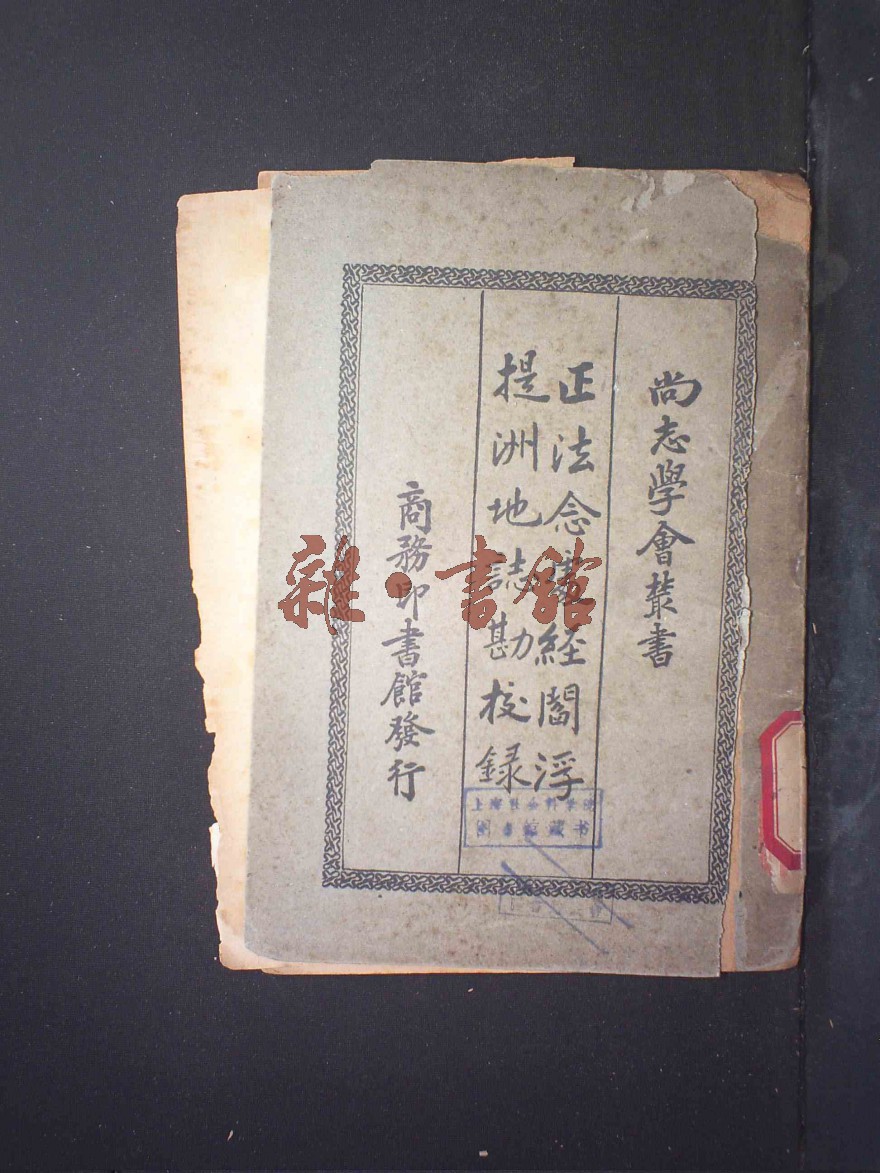 尚志學會叢書
正法念處經閻浮
提洲地誌勘校錄
商務印書館發行
雜·書館
上海社会科学院
图書館藏书